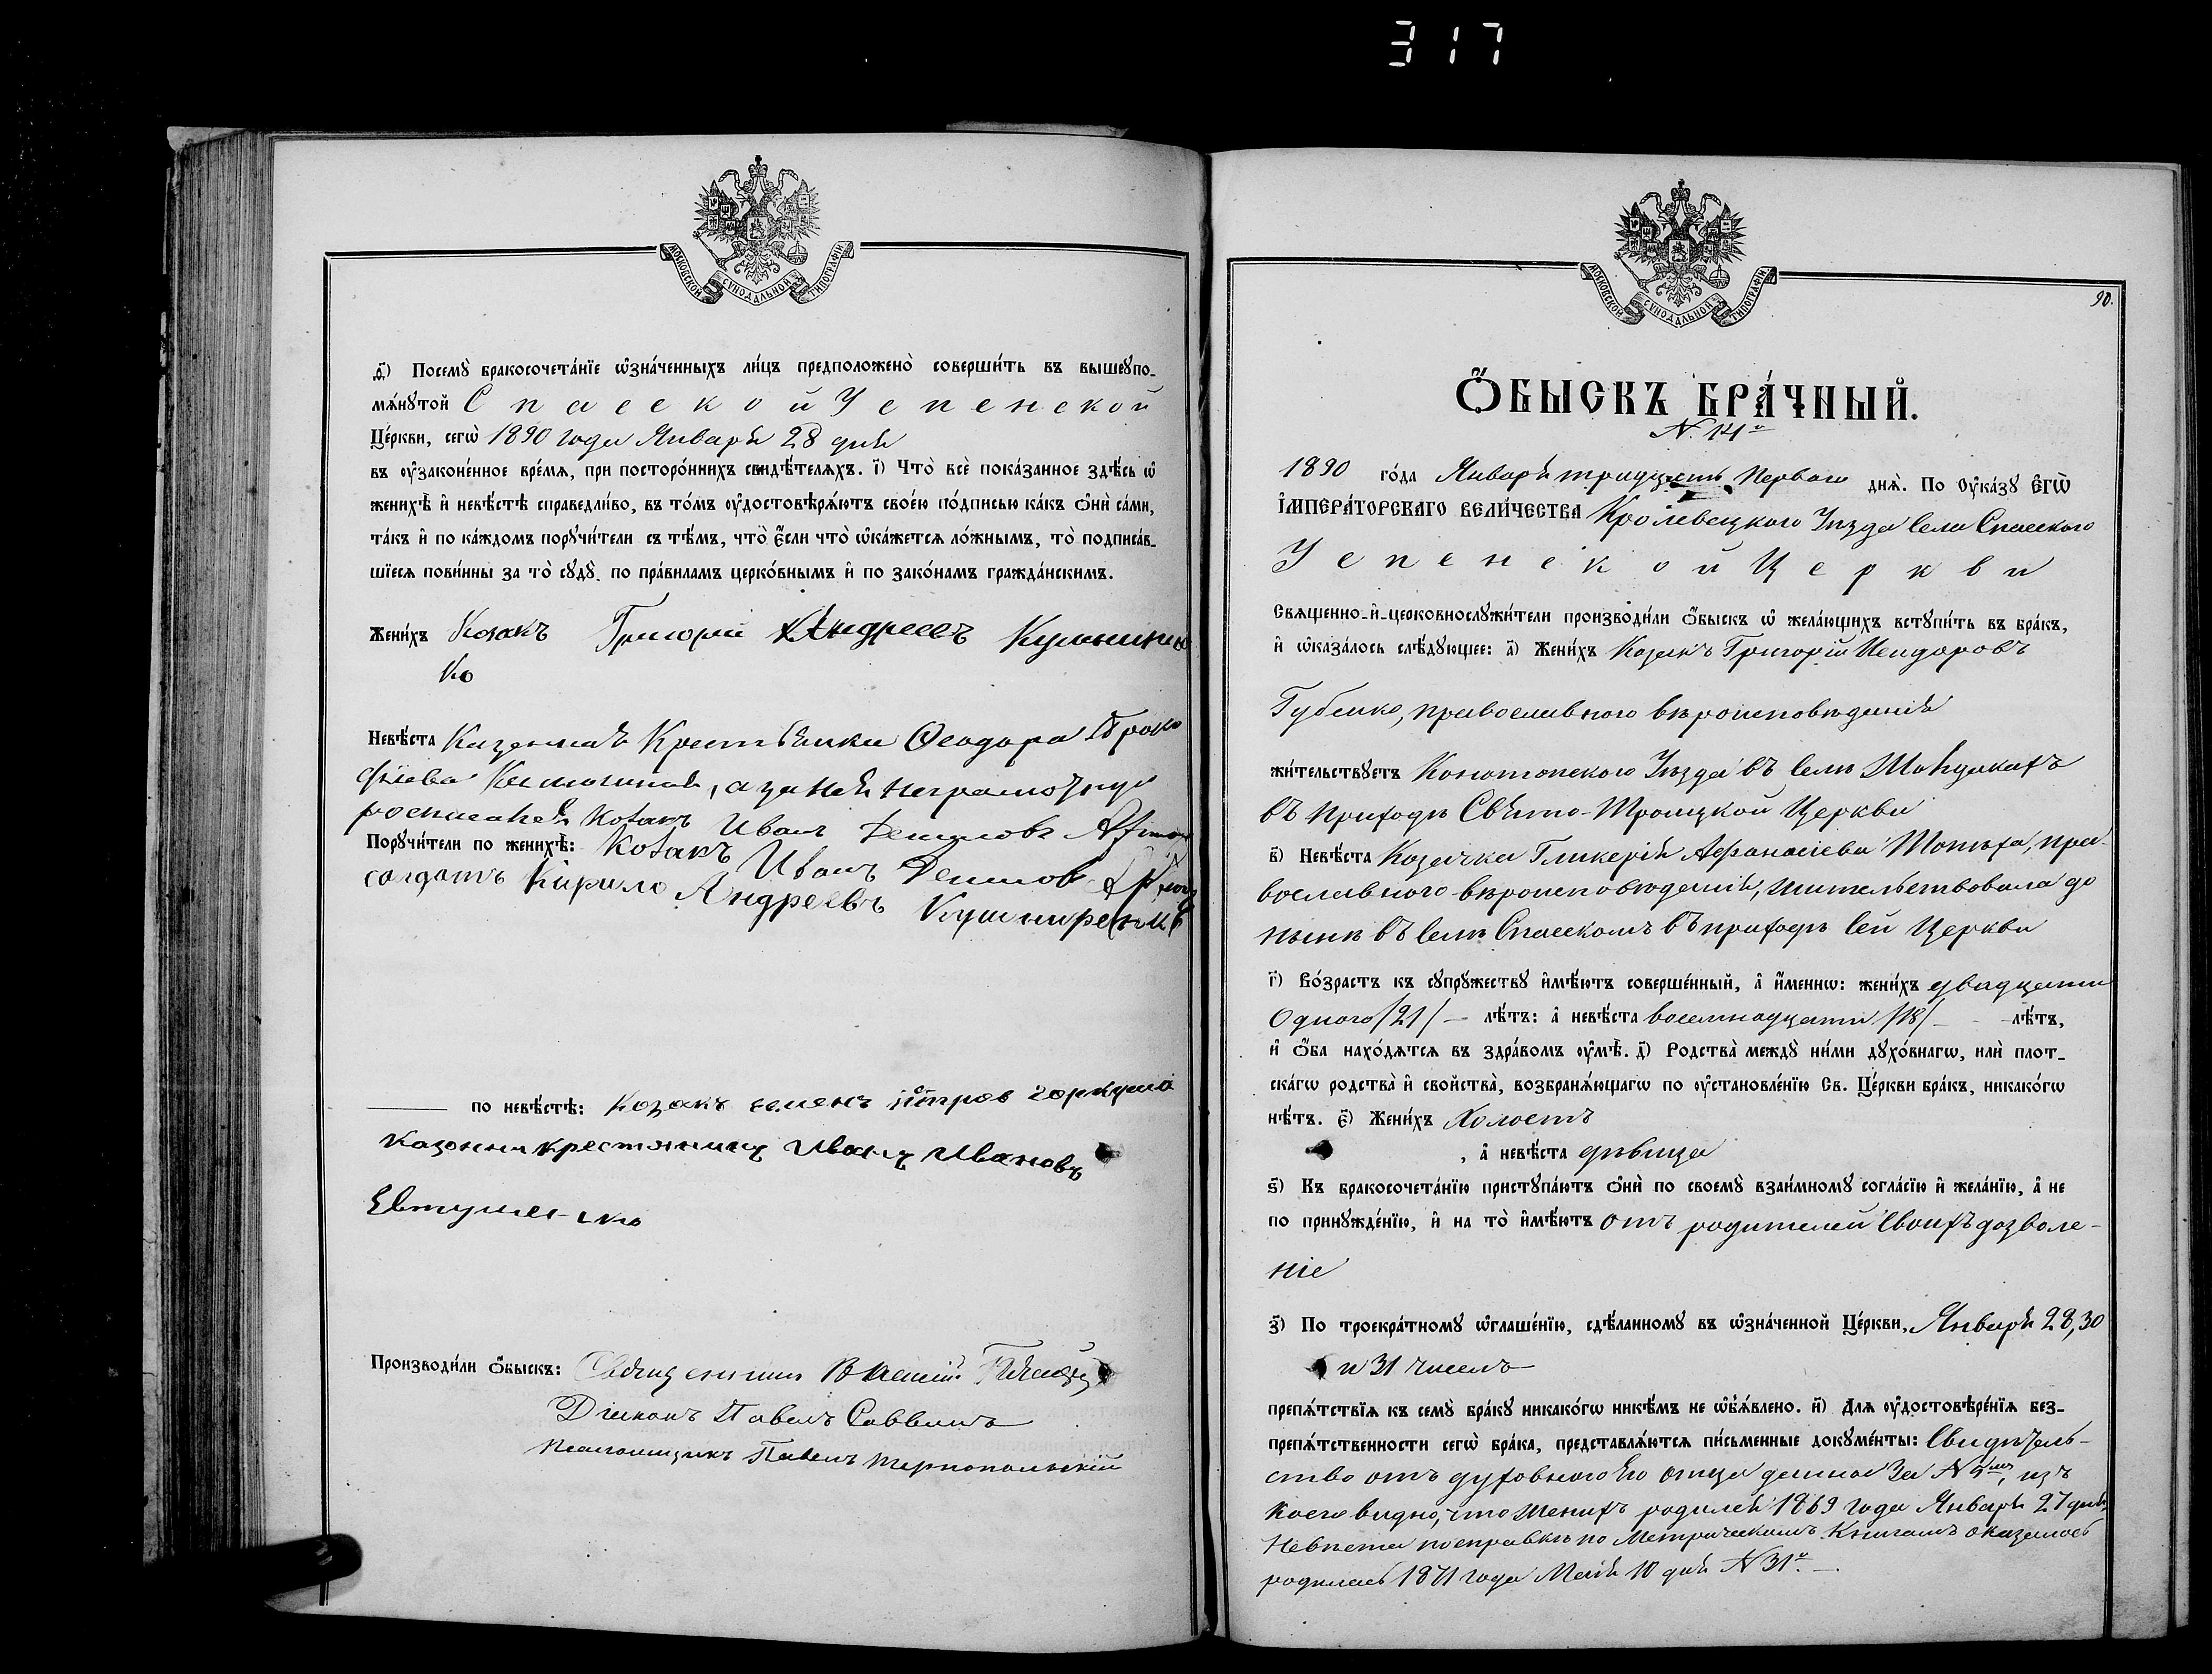 317
МОСКОВСКОЙ СѴНОДАЛЬНОЙ ТИПОГРАФІИ
д҃і) Посемꙋ̀ бракосочета́нїе ѡ҆зна́ченныхъ ли́цъ предположено̀ соверши́ть въ вышеꙋпо-
мѧ́нꙋтой Спасской Успенской
Це́ркви, сегѡ̀ 1890 года Января 28 дня
въ ᲂу҆законе́нное вре́мѧ, при посторо́ннихъ свидѣ́телѧхъ. і҃) Что̀ всѐ пока́занное здѣ́сь ѡ҆
женихѣ̀ и҆ невѣ́стѣ справедли́во, въ то́мъ ᲂу҆достовѣрѧ́ютъ свое́ю по́дписью ка́къ ѻ҆нѝ са́ми,
та́къ и҆ по ка́ждомъ порꙋчи́тели съ тѣ́мъ, что̀ є҆́сли что̀ ѡ҆ка́жетсѧ ло́жнымъ, то̀ подписа́в-
шїесѧ пови́нны за то̀ сꙋдꙋ̀ по пра́виламъ церко́внымъ и҆ по зако́намъ гражда́нскимъ.
Жени́хъ Козакъ Григорій Андреевъ Кушнирен
ко
Невѣ́ста Казенная Крестьянка Ѳеодора Проко
фіева, а за нея неграмотную
росписался Козакъ Иванъ Демидовъ
Порꙋчи́тели по женихѣ̀: Козакъ Иванъ Демидов
солдатъ Кирило Андреевъ Кушниренко
по невѣ́стѣ: Козакъ семенъ петров горкуша
Казенни крестянинъ Иванъ Ивановъ
Евтушенко
Производи́ли ѻ҆́быскъ: Священникъ Василій
Діаконъ Павелъ Саввичъ
Псаломщикъ Павелъ Тернопольскій
МОСКОВСКОЙ СѴНОДАЛЬНОЙ ТИПОГРАФІИ
90.
Ѻ҆́БЫСКЪ БРА́ЧНЫЙ.
N. 14й
1890 го́да Января тридцать Перваго днѧ̀. По Оу҆ка́зꙋ Є҆ГѠ̀
І҆МПЕРА́ТОРСКАГО ВЕЛИ́ЧЕСТВА Кролевецкого Уѣзда Села Спасского
Успенской Церкви
Свѧще́нно-и҆-церковнослꙋжи́тели производи́ли ѻ҆́быскъ ѡ҆ жела́ющихъ встꙋпи́ть въ бра́къ,
и҆ ѡ҆каза́лось слѣ́дꙋющее: а҃) Жени́хъ Козакъ Григорій Исидоровъ
Губенко, православного вѣроисповѣданія
жи́тельствꙋетъ Конотопского Уѣзда въ Селѣ
въ приходѣ Свято-Троицкой Церкви
в҃) Невѣ́ста Козачка Гликерія Афанасіева, пра-
вославного вѣроисповѣданія, жительствовала до
нынѣ въ Селѣ Спасскомъ въ приходѣ Сей Церкви
г҃) Во́зрастъ къ сꙋпрꙋ́жествꙋ и҆мѣ́ютъ соверше́нный, а҆ и҆́меннѡ: жени́хъ двадцати
Одного /21/ лѣ́тъ: а҆ невѣ́ста восемнадцати /18/ лѣ́тъ,
и҆ ѻ҆́ба нахо́дѧтсѧ въ здра́вомъ ᲂу҆мѣ̀. д҃) Родства̀ междꙋ̀ ни́ми дꙋхо́внагѡ, илѝ плот-
ска́гѡ родства̀ и҆ сво́йства, возбранѧ́ющагѡ по ᲂу҆становле́нїю Св. Це́ркви бра́къ, никако́гѡ
нѣ́тъ. є҃) Жени́хъ Холостъ
, а҆ невѣ́ста дѣвица
ѕ҃) Къ бракосочета́нїю пристꙋпа́ютъ ѻ҆нѝ по своемꙋ̀ взаи́мномꙋ согла́сїю и҆ жела́нїю, а҆ не
по принꙋжде́нїю, и҆ на то̀ и҆мѣ́ютъ отъ родителей своихъ дозволе-
ніе
з҃) По троекра́тномꙋ ѡ҆глаше́нїю, сдѣ́ланномꙋ въ ѡ҆зна́ченной Це́ркви, Января 28, 30
и 31 чиселъ
препѧ́тствїѧ къ семꙋ̀ бра́кꙋ никако́гѡ никѣ́мъ не ѡ҆б̾ѧ́влено. и҃) Длѧ ᲂу҆достовѣре́нїѧ без-
препѧ́тственности сегѡ̀ бра́ка, представлѧ́ютсѧ пи́сьменные докꙋме́нты: Свидѣтель-
ство отъ духовного Его отца данное За N 5мъ, изъ
коего видно, что женихъ родился 1869 года Января 27 дня,
Невѣста по справкѣ по Метрическимъ Книгамъ оказалось
родилась 1871 года Маія 10 дня N 31й.